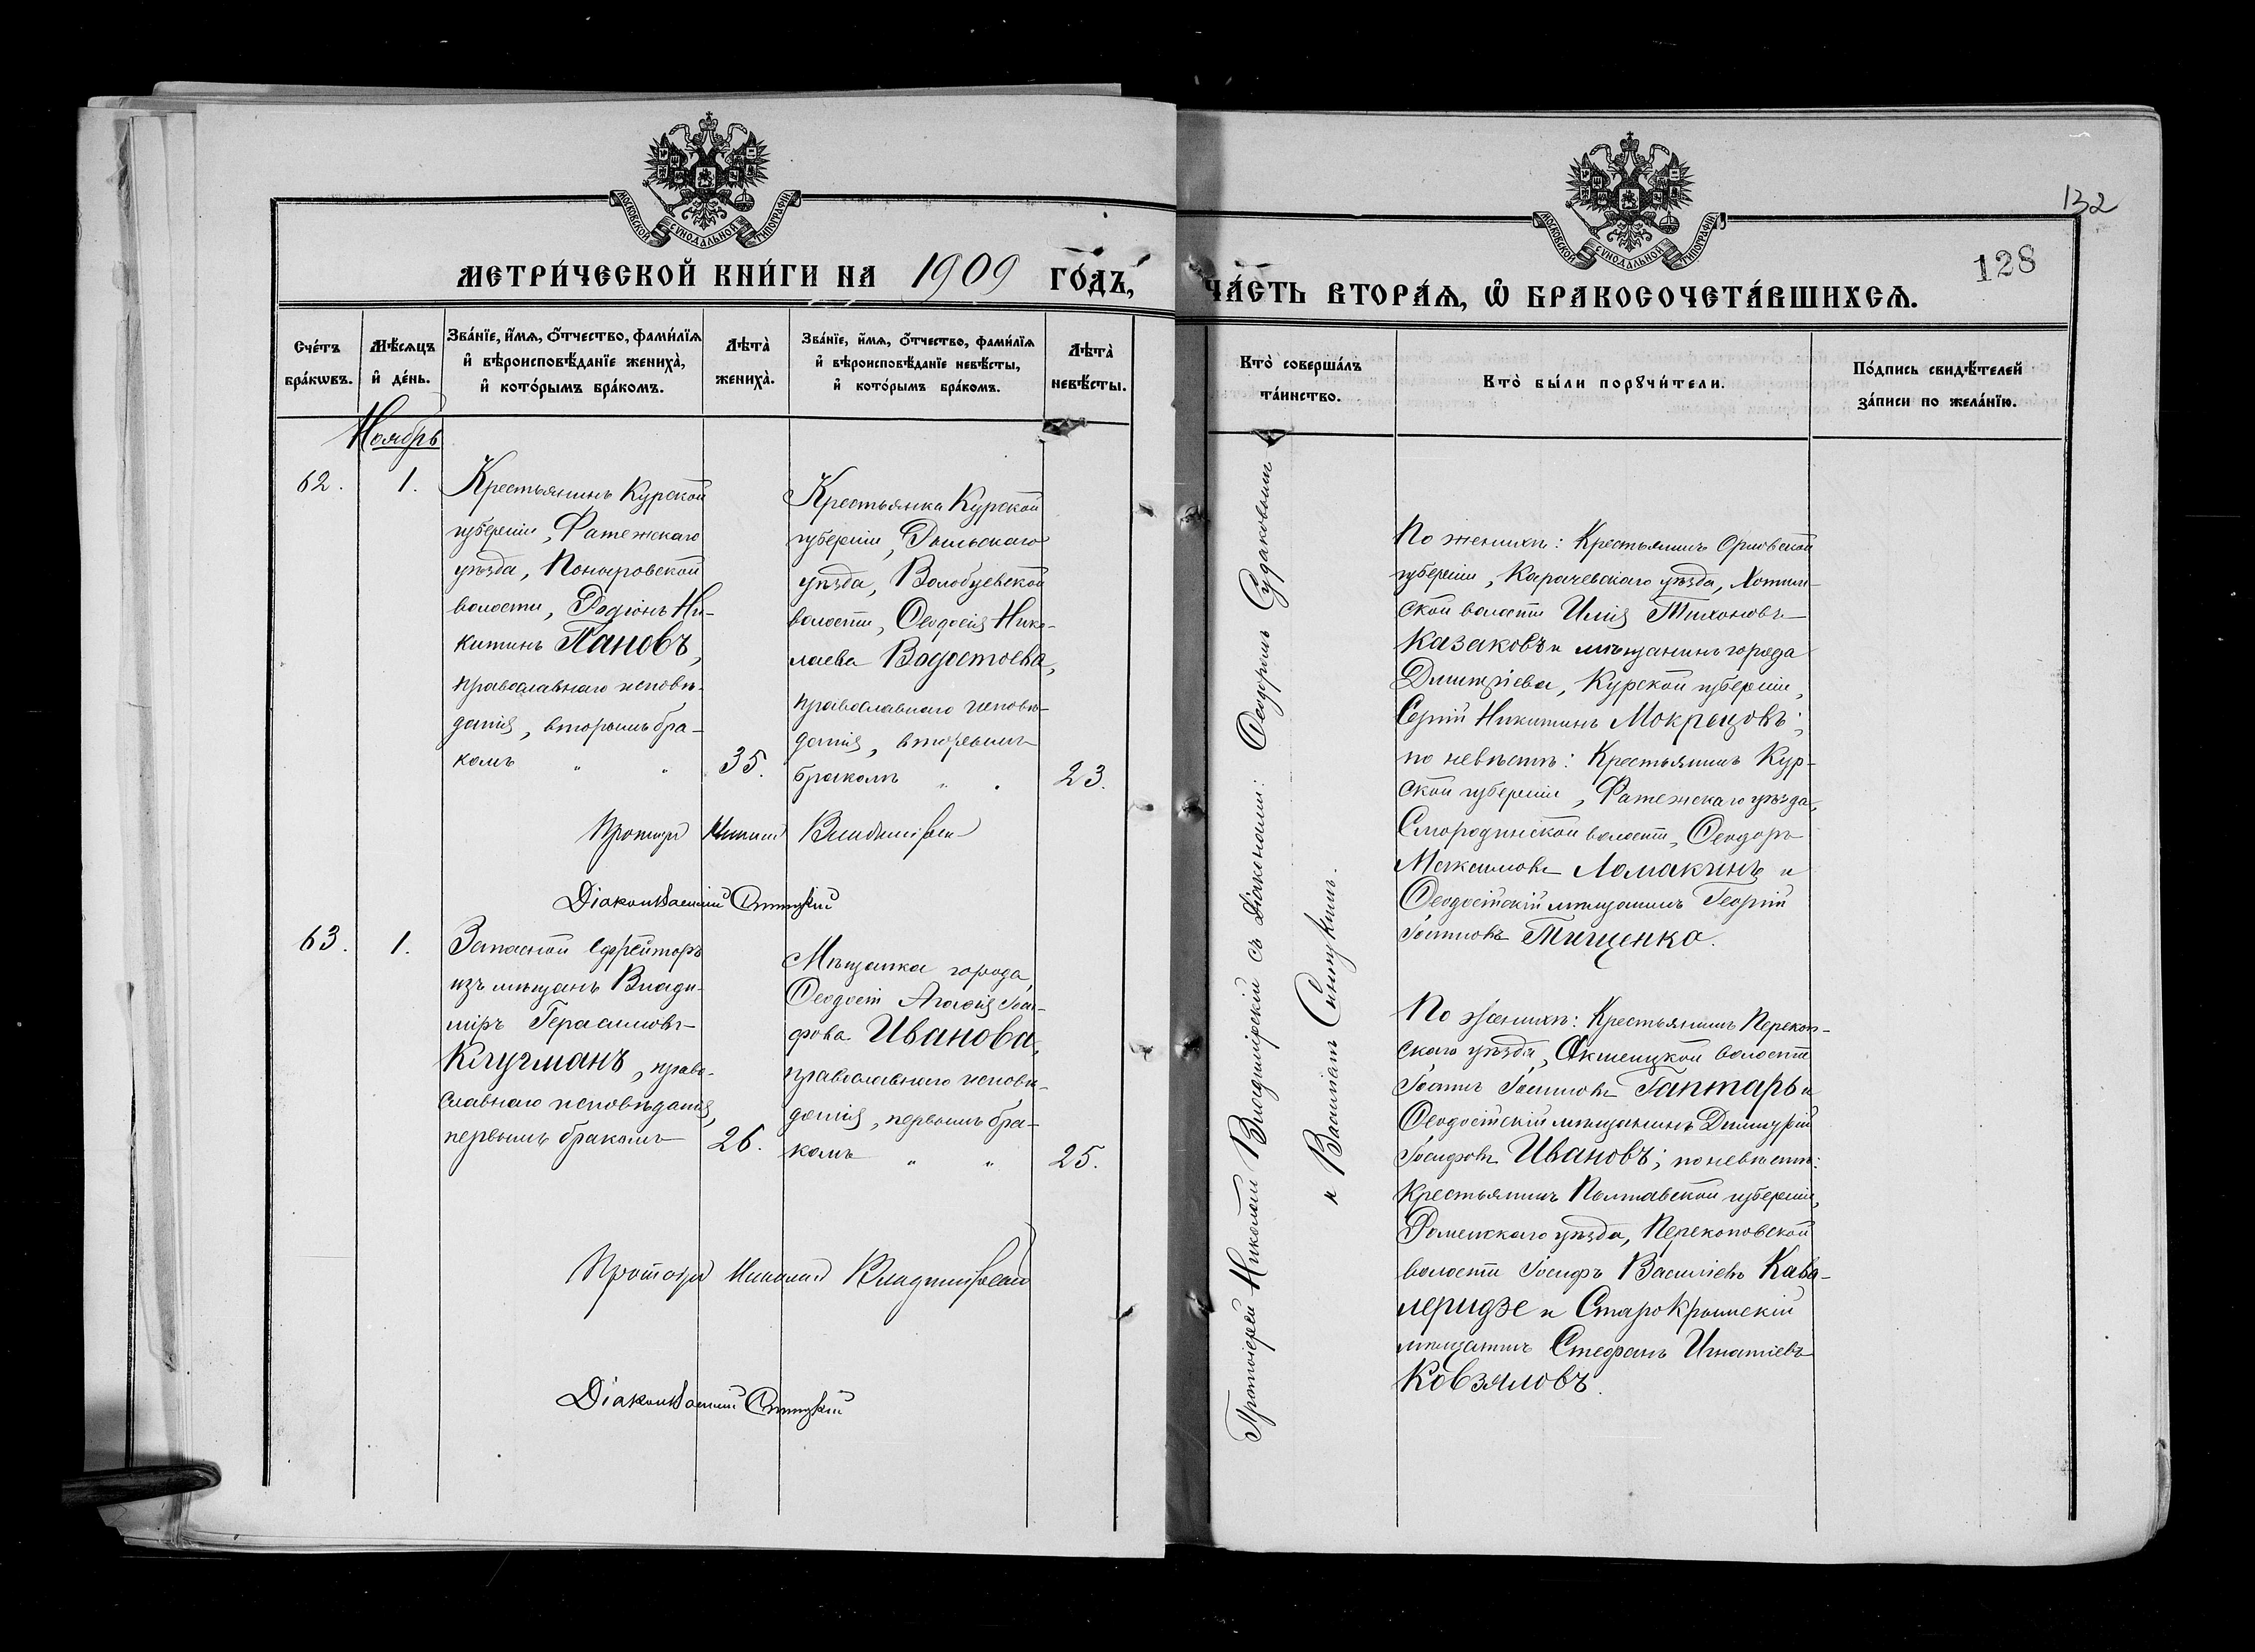 МОСКОВСКОЙ СУНОДАЛЬНОЙ ТИПОГРАФІИ
МЕТРИ́ЧЕСКОЙ КНИ́ГИ НА 1909 ГО́ДЪ,
Сче́тъ бра́кωвъ.
Мѣ́сяцъ и҆ де́нь.
Зва́нїе, и҆́мѧ, ѻ҆́тчество, фами́лїѧ
и҆ вѣроисповѣ́данїе жениха̀,
и҆ кото́рымъ бра́комъ.
Лѣта̀ жениха̀.
Зва́нїе, и҆́мѧ, ѻ҆́тчество, фами́лїѧ
и҆ вѣроисповѣ́данїе невѣ́сты,
и҆ кото́рымъ бра́комъ.
Лѣта̀ невѣ́сты.
Ноябрь
62.
1.
Крестьянинъ Курской
губерніи, Фатежскаго
уѣзда, Поныровской
волости, Родіонъ Ни-
китинъ Пановъ,
православнаго исповѣ-
данія, вторымъ бра-
комъ " "
35.
Крестьянка Курской
губерніи, Рыльскаго
уѣзда, Волобуевской
волости, Ѳеодосія Нико-
лаева Водостоева,
православнаго исповѣ-
данія, вторымъ
бракомъ " .
23.
Протоіер Николай Владимірскій
Діаконъ Василій Синицкій
63.
1.
Запасной ефрейторъ
изъ мѣщанъ Влади-
міръ Герасимовъ
Клугманъ, право-
славнаго исповѣданія,
первымъ бракомъ
26.
Мѣщанка города
Ѳеодосіи Агаѳія Іоси-
фова Иванова,
православнаго исповѣ-
данія, первымъ бра-
комъ " "
25.
Протоіер Николай Владимірскій
Діаконъ Василій Синицкій
МОСКОВСКОЙ СУНОДАЛЬНОЙ ТИПОГРАФІИ
132
128
ЧА́СТЬ ВТОРА́Ѧ, Ѽ БРАКОСОЧЕТА́ВШИХСѦ.
Кто̀ соверша́лъ
та́инство.
Кто̀ бы́ли порꙋчи́тели.
По́дпись свидѣ́телей
за́писи по жела́нїю.
Протоіерей Николай Владимірскій съ діаконами: Ѳеодоромъ Судаковымъ
и Василіемъ Синицкимъ.
По женихѣ: Крестьянинъ Орловской
губерніи, Карачевскаго уѣзда, Хотин-
ской волости Илія Тихоновъ
Казаковъ и мѣщанинъ города
Дмитріева, Курской губерніи,
Сергій Никитинъ Мокрецовъ;
по невѣстѣ: Крестьянинъ Кур-
ской губерніи, Фатежскаго уѣзда,
Смородинской волости, Ѳеодоръ
Максимовъ Ломакинъ и
Ѳеодосійскій мѣщанинъ Георгій
Іоанновъ Тищенко.
По женихѣ: Крестьянинъ Перекоп-
скаго уѣзда, волости
Іоаннъ Іоанновъ Гаптарь и
Ѳеодосійскій мѣщанинъ Димитрій
Іосифовъ Ивановъ; по невѣстѣ:
Крестьянинъ Полтавской губерніи,
Роменскаго уѣзда, Перекоповской
волости Іосифъ Василіевъ Кава-
леридзе и Старокрымскій
мѣщанинъ Стефанъ Игнатіевъ
Ковзяловъ.